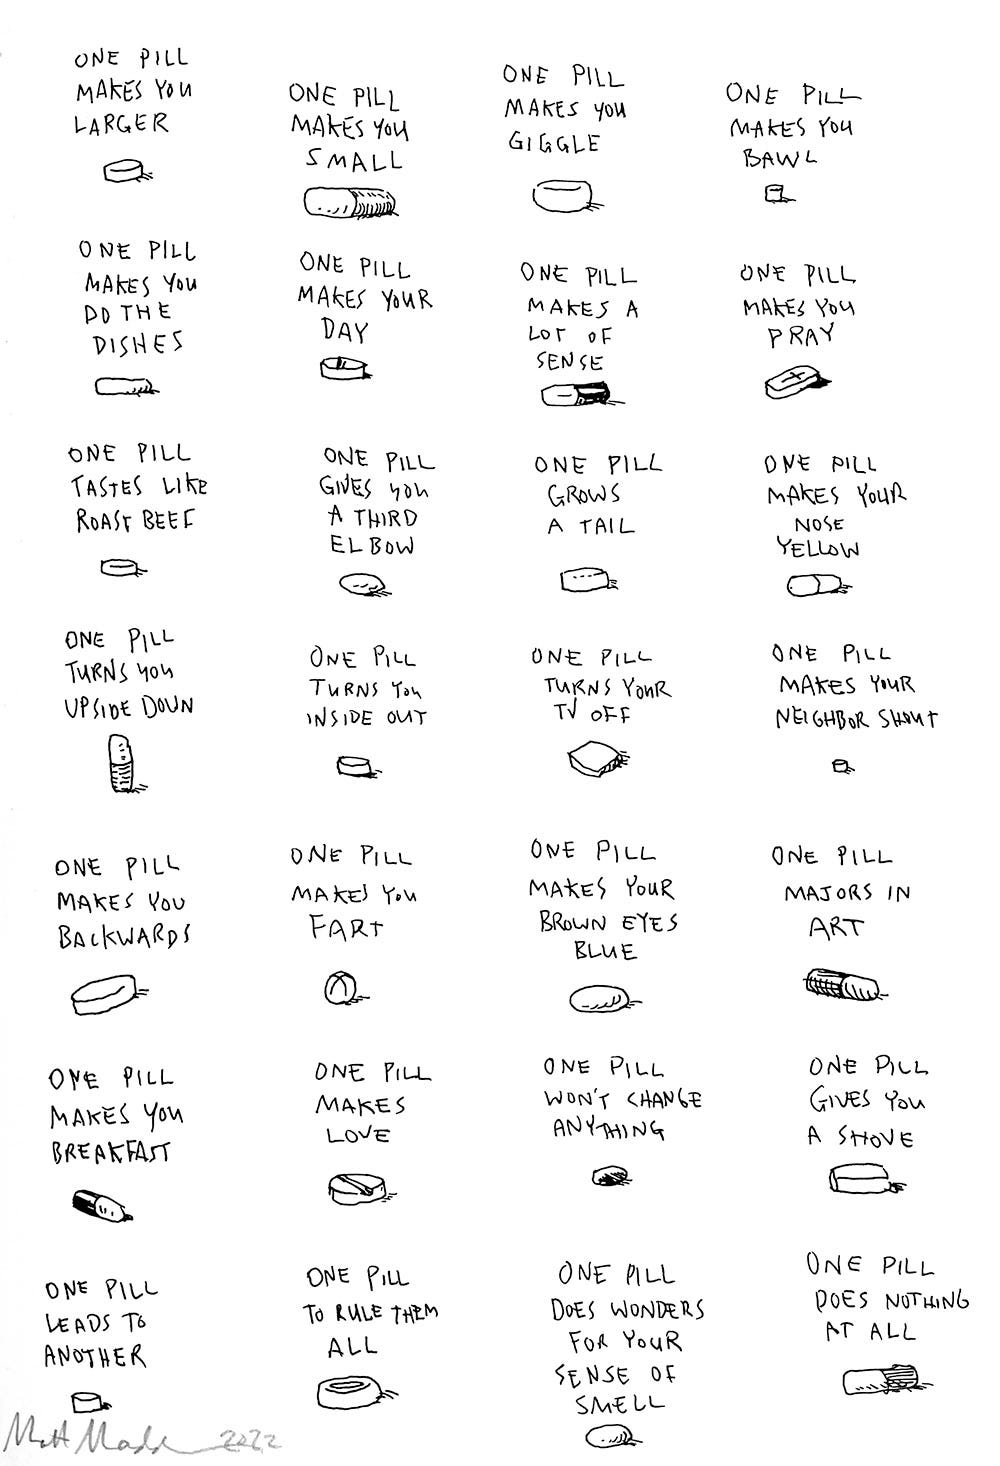 ONE PILL
MAKES YOU
LARGER
ONE PILL
MAKES YOU
SMALL
ONE PILL
MAKES YOU
GIGGLE
ONE PILL
MAKES YOU
BAWL
ONE PILL
MAKES YOU
DO THE
DISHES
ONE PILL
MAKES YOUR
DAY
ONE PILL
MAKES A
LOT OF
SENSE
ONE PILL
MAKES YOU
PRAY
ONE PILL
TASTES LIKE
ROAST BEEF
ONE PILL
GIVES YOU
A THIRD
ELBOW
ONE PILL
GROWS
A TAIL
ONE PILL
MAKES YOUR
NOSE
YELLOW
ONE PILL
TURNS YOU
UPSIDE DOWN
ONE PILL
TURNS YOU
INSIDE OUT
ONE PILL
TURNS YOUR
TV OFF
ONE PILL
MAKES YOUR
NEIGHBOR SHOUT
ONE PILL
MAKES YOU
BACKWARDS
ONE PILL
MAKES YOU
FART
ONE PILL
MAKES YOUR
BROWN EYES
BLUE
ONE PILL
MAJORS IN
ART
ONE PILL
MAKES YOU
BREAKFAST
ONE PILL
MAKES
LOVE
ONE PILL
WON'T CHANGE
ANYTHING
ONE PILL
GIVES YOU
A SHOVE
ONE PILL
LEADS TO
ANOTHER
ONE PILL
TO RULE THEM
ALL
ONE PILL
DOES WONDERS
FOR YOUR
SENSE OF
SMELL
ONE PILL
DOES NOTHING
AT ALL
Matt Madden 2022